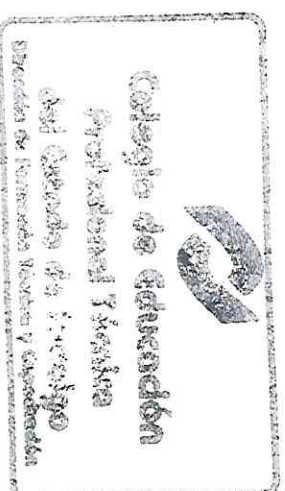 Colegio de Educación
Profesional Técnica
del Estado de
Dirección de Formación Técnica y Capacitación